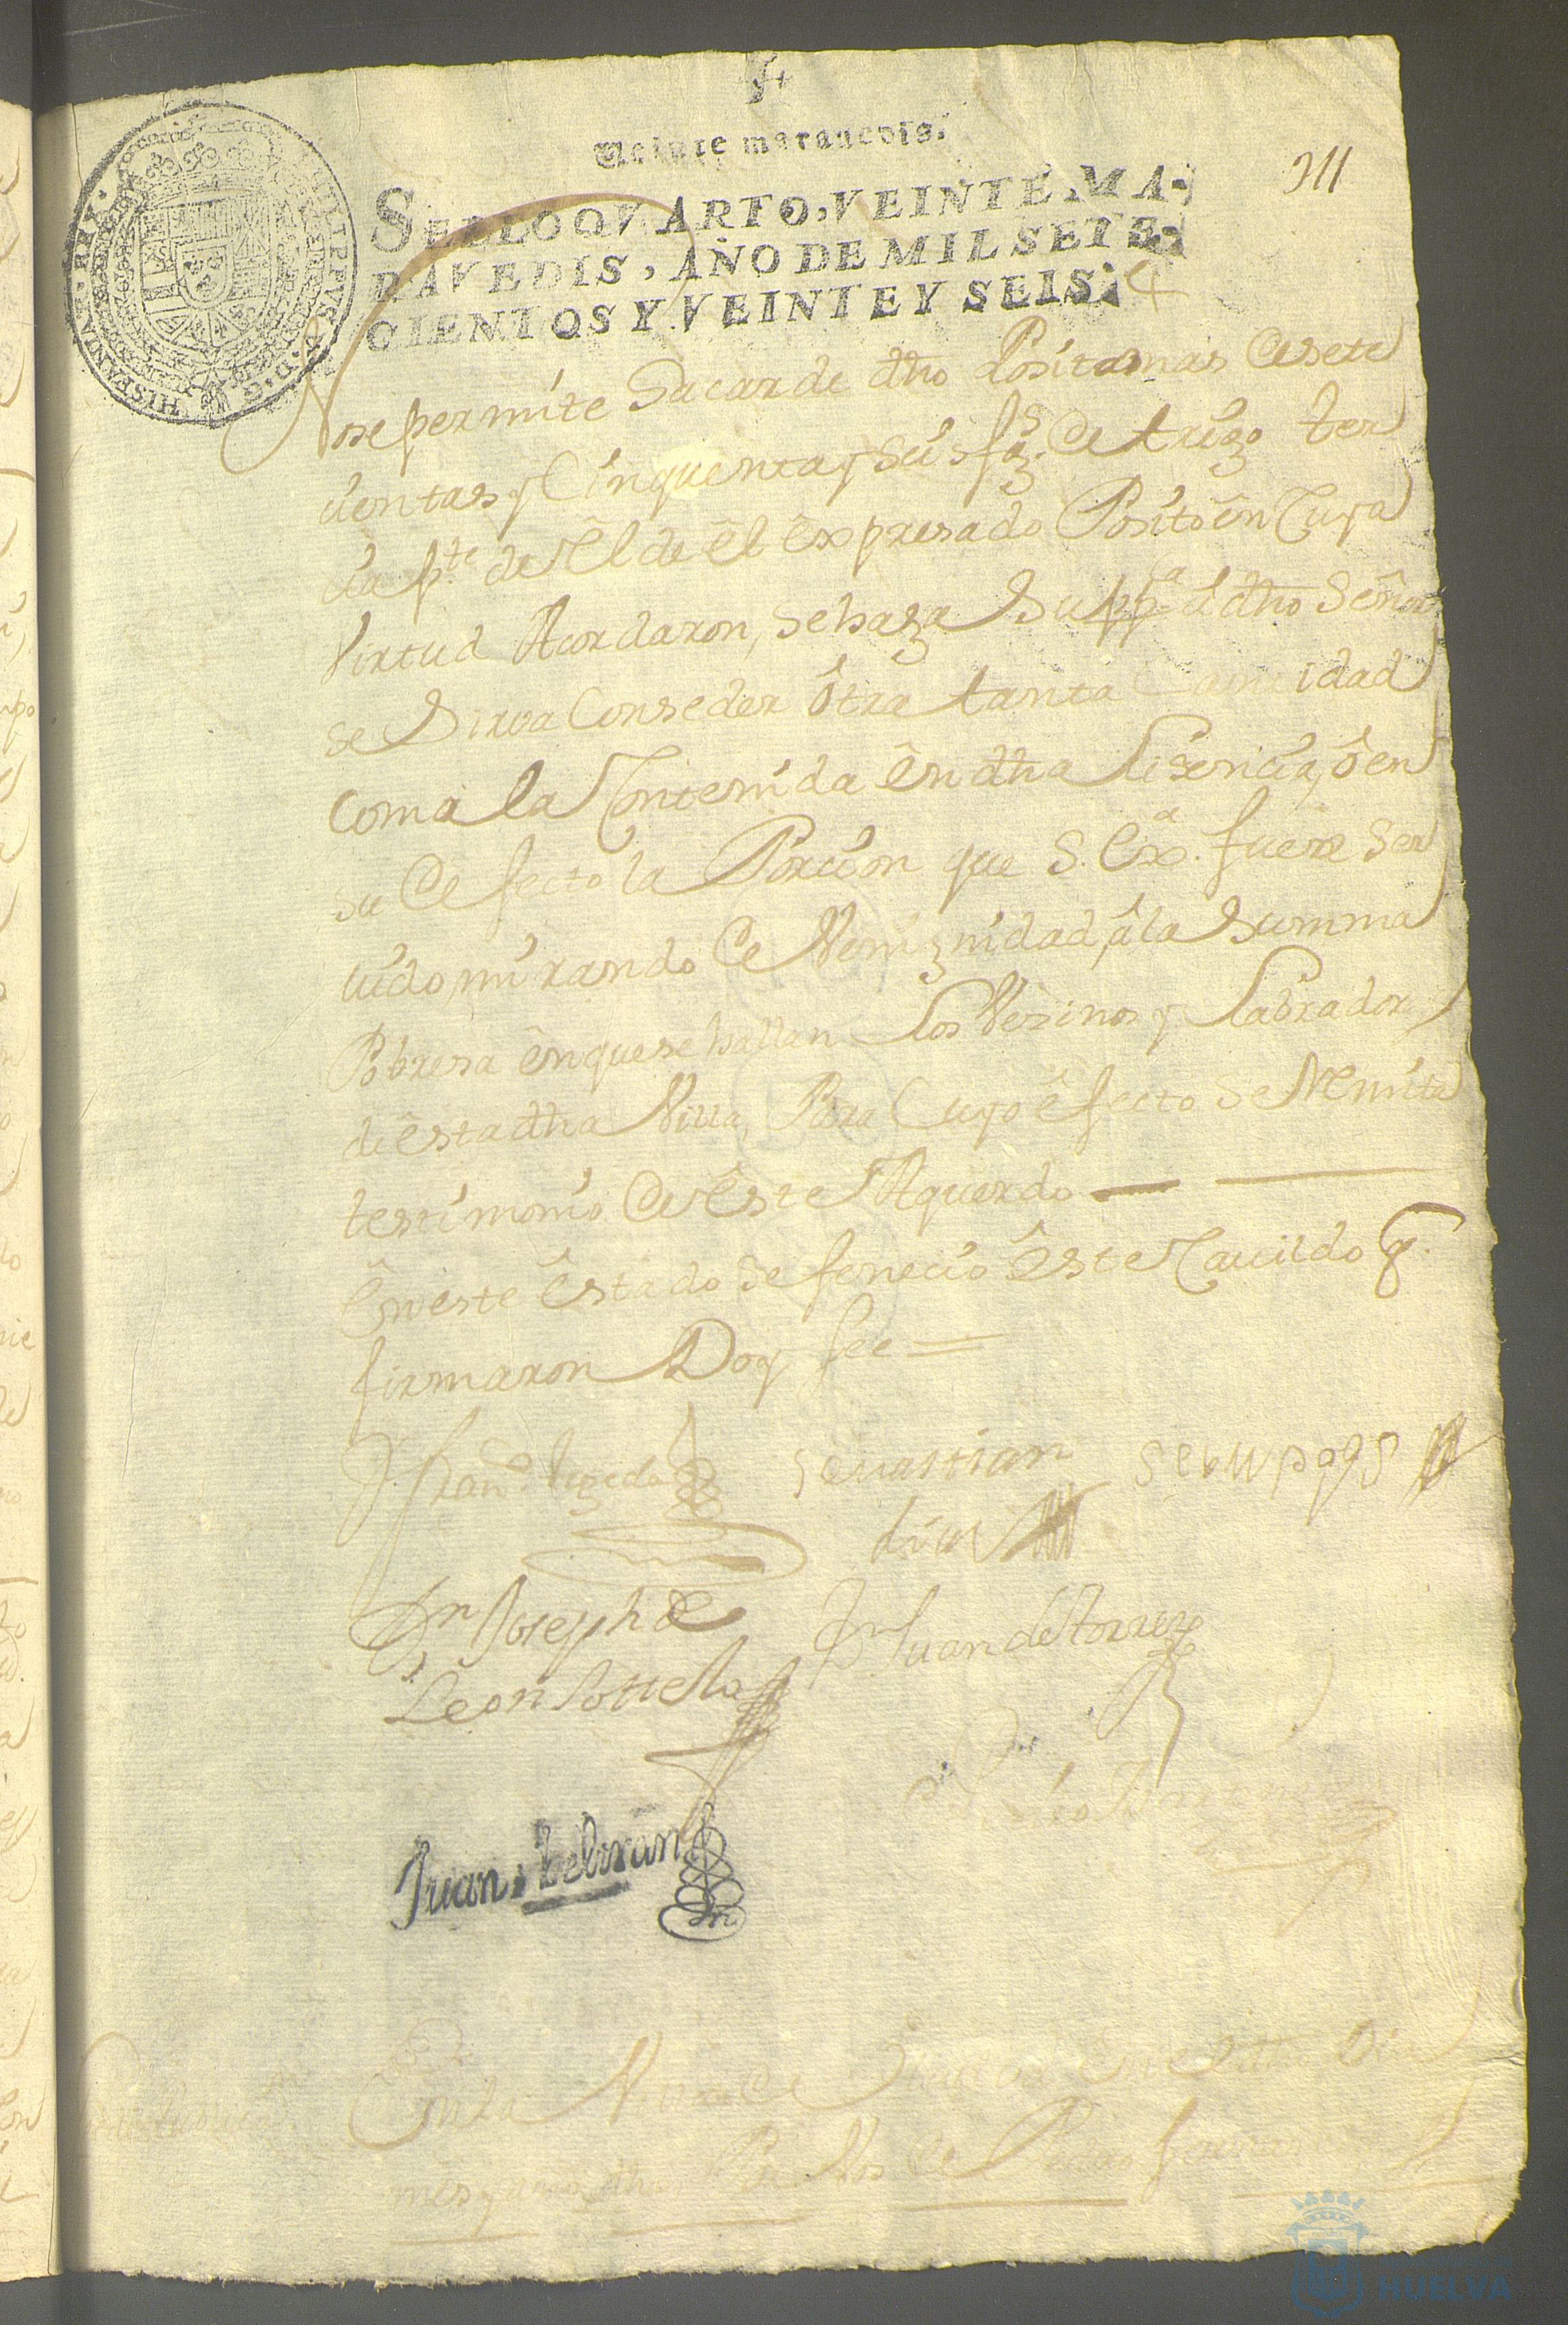 Veinte marauedis.
311
SELLO QVARTO, VEINTE MA-
RAVEDIS, AÑO DE MIL SETE-
CIENTOS Y VEINTE Y SEIS.
PHILIPPUS V. D. G. HISPANIAR. REX.
No se permite Sacar de dho Posito mas de sete
cientas y Cinquenta y Seis fgs. de trigo ter
cia pte de el de el expresado Posito en Cuya
Virtud Acordaron, se haga Suppca a dho Señor
se Sirva Conseder otra tanta Cantidad
como la Contenida en dha Lisencia, o en
su defecto la Porcion que S. Exa. fuere Ser
uido mirando de Venignidad, a la Summa
Pobresa en que se hallan los Vezinos y Labradors
de esta dha Villa, Para Cuyo efecto se Remita
testimonio de este Aquerdo
En este estado se fenecio este Cauildo q.
firmaron Doy fee =
D. Frano. Zepeda seuastian
dias
Dn Joseph de Dn Juan de torres
Leon Sottella
Juan. beltran
En la Villa de Huelva en el dho Dia
mes y año dho Por Vos de Pedro
HUELVA